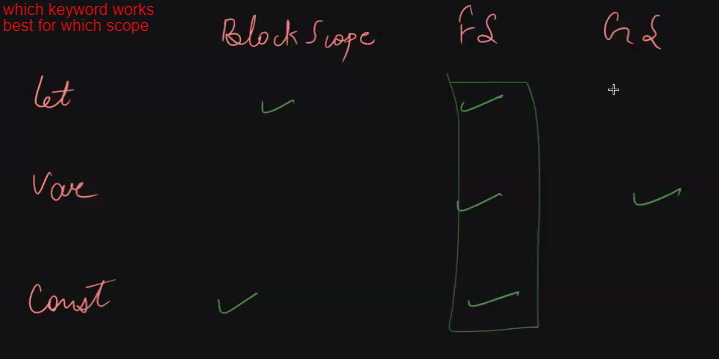 which keyword works
best for which scope
Block Scope FS GS
let
Var
Const